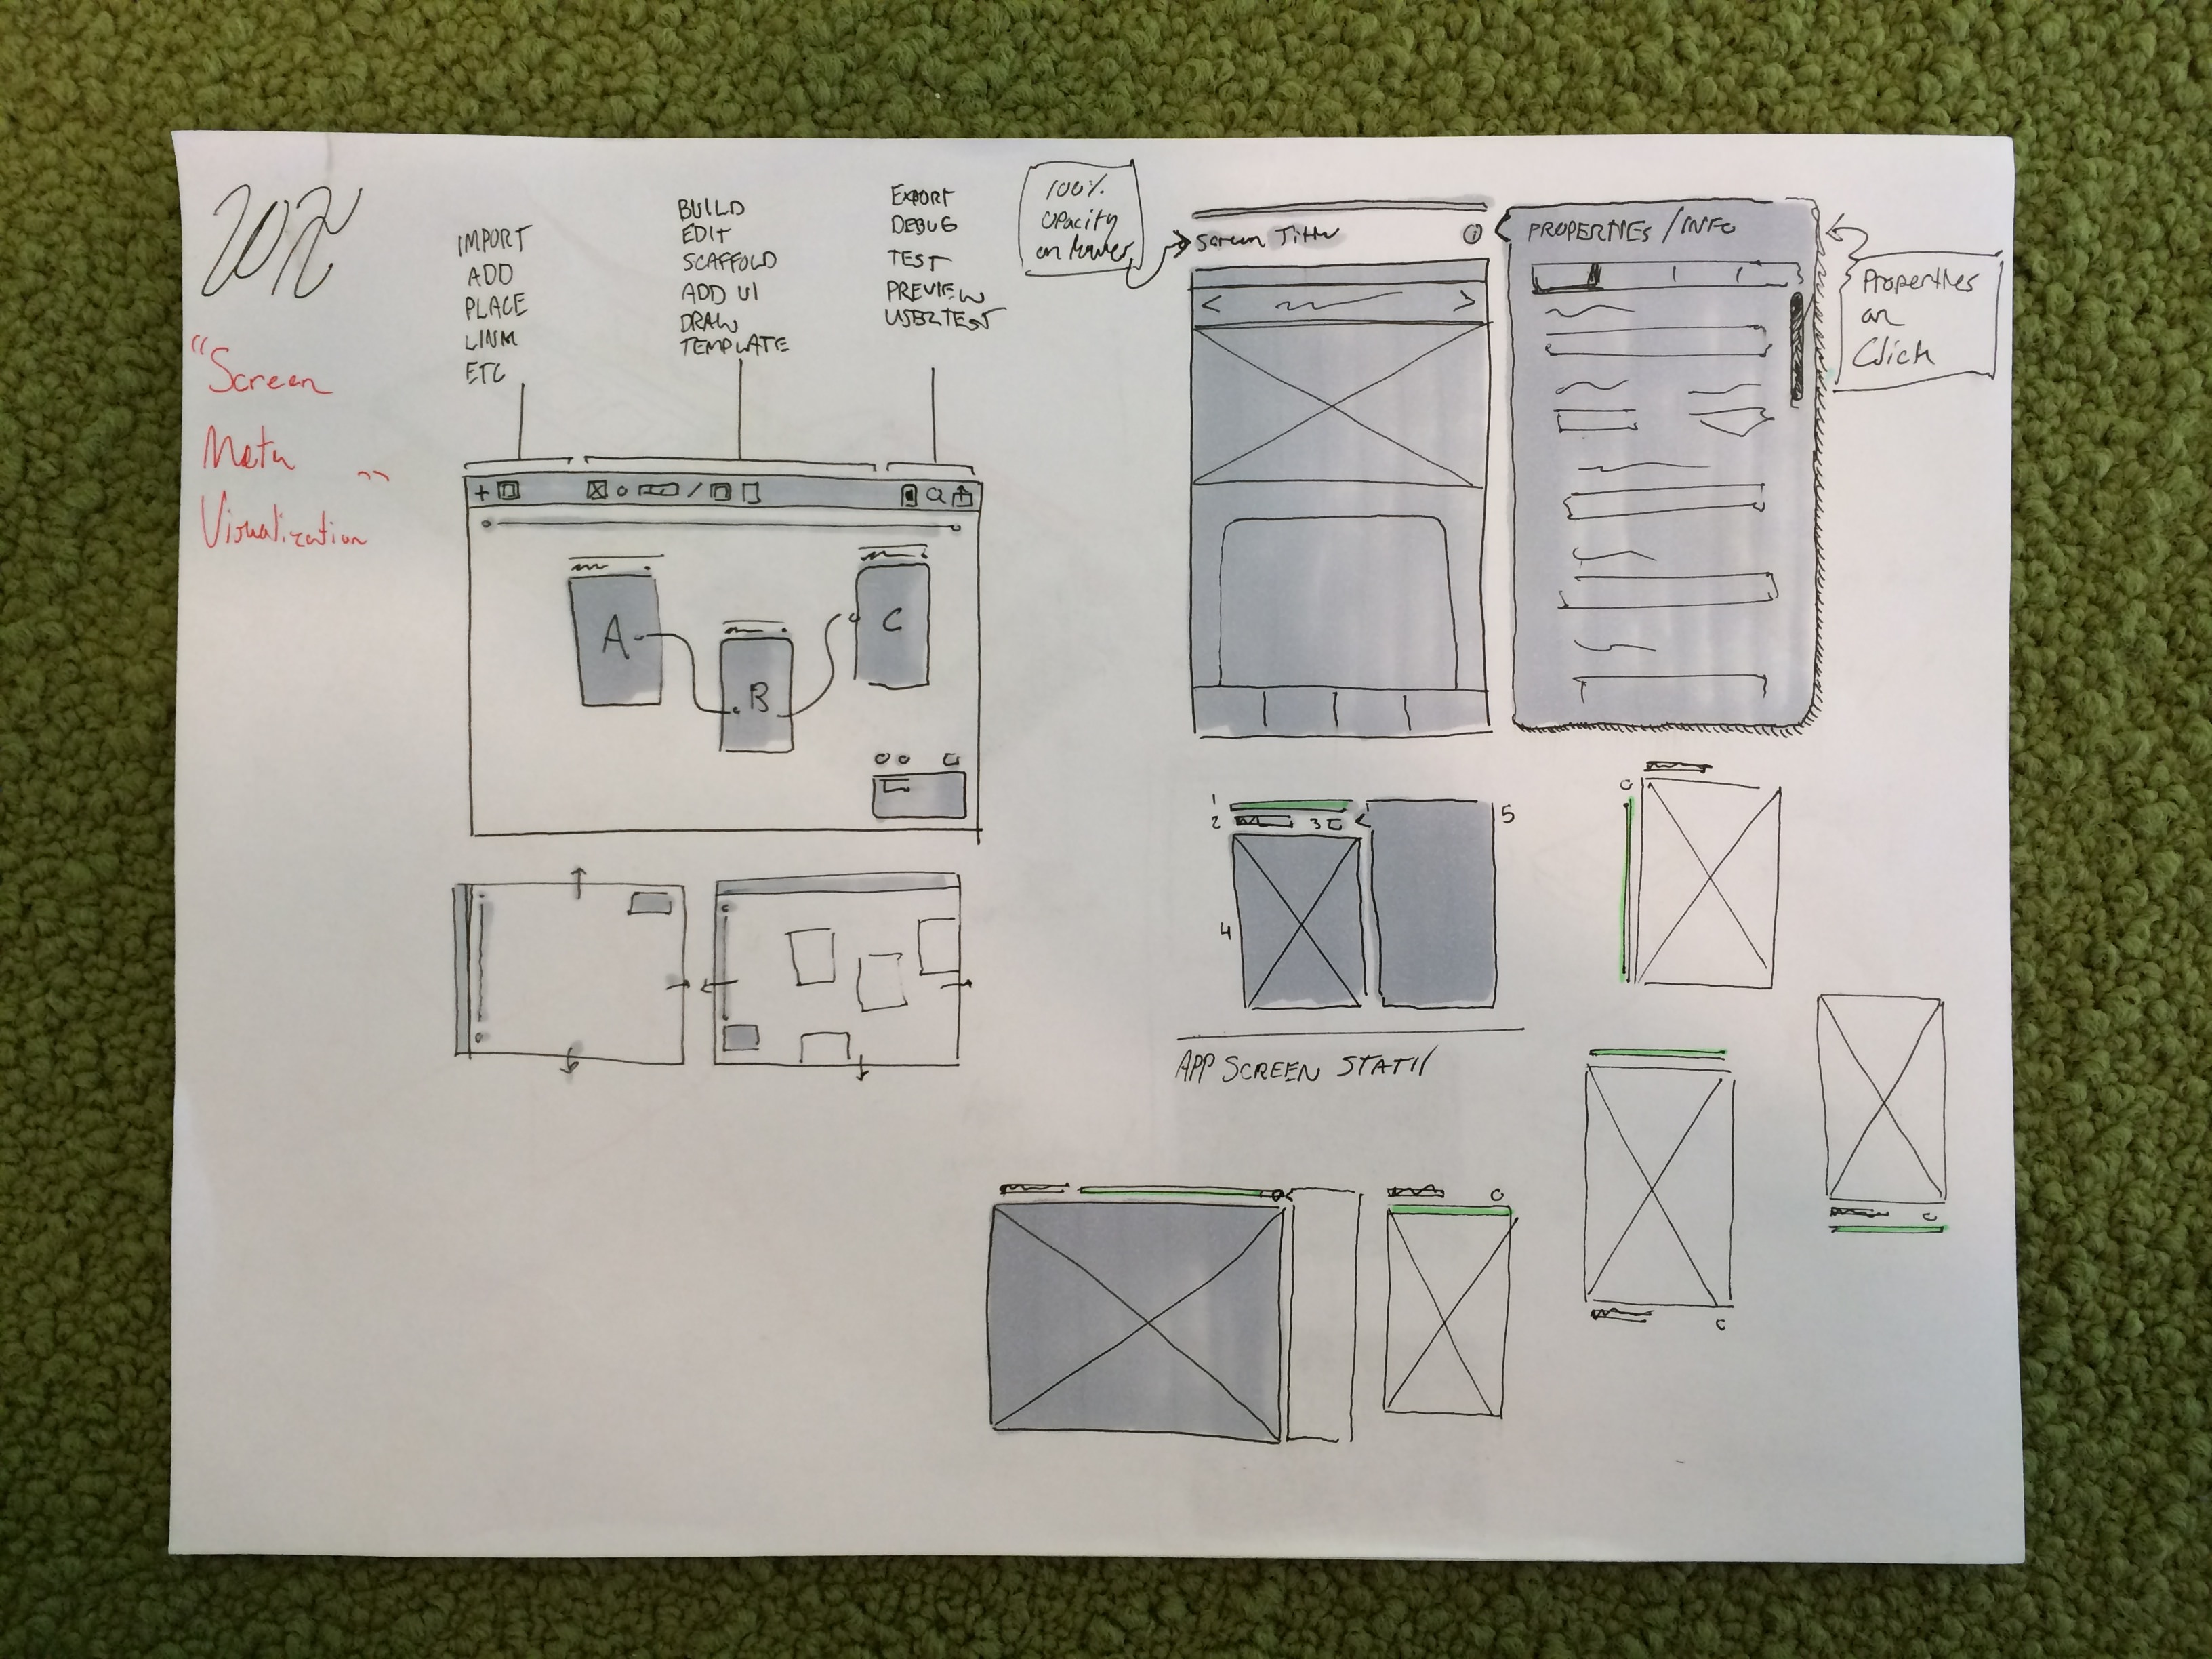 2012
"Screen
Meta
Visualization
IMPORT
ADD
PLACE
LINK
ETC
BUILD
EDIT
SCAFFOLD
ADD UI
DRAW
TEMPLATE
EXPORT
DEBUG
TEST
PREVIEW
USERTEST
100%
opacity
on hover
Screen Title
i
PROPERTIES / INFO
Properties
on
Click
A
B
C
1
2
3
4
5
APP SCREEN